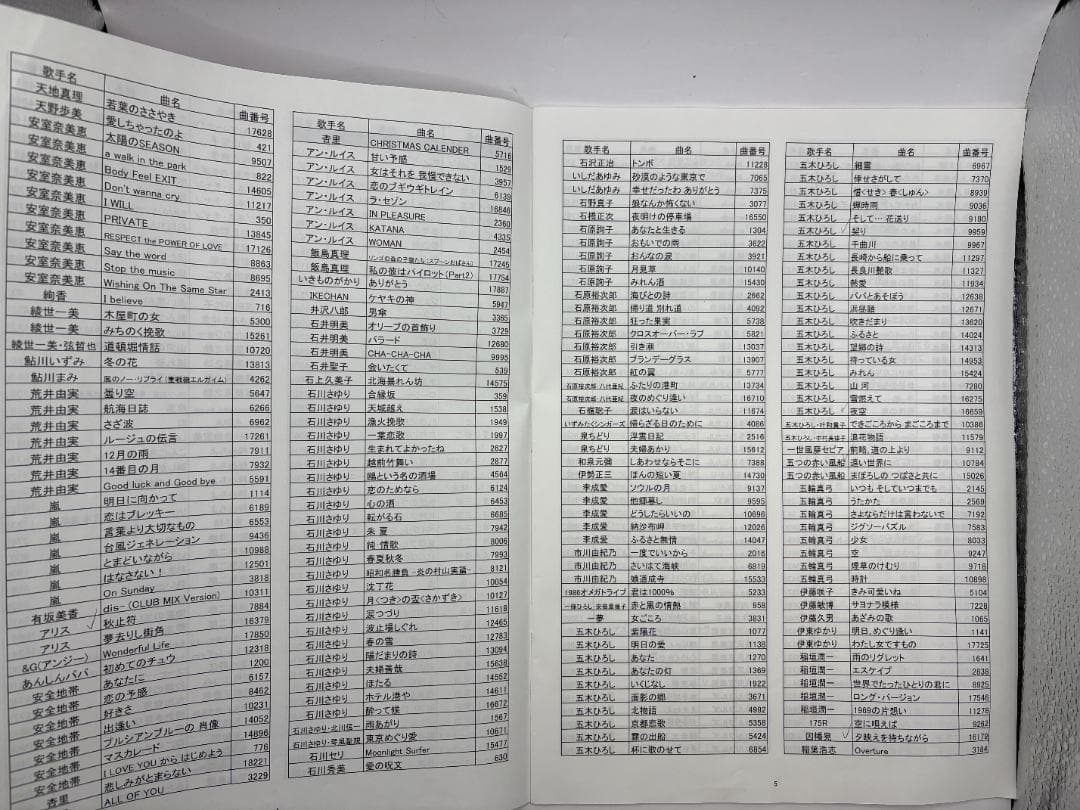 歌手名 曲名 曲番号
天地真理 若葉のささやき 17628
天野歩美 愛しちゃったのよ 421
安室奈美恵 太陽のSEASON 9507
安室奈美恵 a walk in the park 822
安室奈美恵 Body Feel EXIT 14605
安室奈美恵 Don't wanna cry 11217
安室奈美恵 I WILL 350
安室奈美恵 PRIVATE 13845
安室奈美恵 RESPECT the POWER OF LOVE 17126
安室奈美恵 Say the word 8863
安室奈美恵 Stop the music 8695
安室奈美恵 Wishing On The Same Star 2413
絢香 I believe 716
綾世一美 木屋町の女 5300
綾世一美 みちのく挽歌 15261
綾世一美・弦哲也 道頓堀情話 10720
鮎川いずみ 冬の花 13813
鮎川まみ 風のノー・リプライ(重戦機エルガイム) 4262
荒井由実 曇り空 5647
荒井由実 航海日誌 6266
荒井由実 さざ波 6962
荒井由実 ルージュの伝言 17261
荒井由実 12月の雨 7911
荒井由実 14番目の月 7932
荒井由実 Good luck and Good bye 5591
嵐 明日に向かって 1114
嵐 恋はブレッキー 6189
嵐 言葉より大切なもの 6553
嵐 台風ジェネレーション 9436
嵐 とまどいながら 10988
嵐 はなさない! 12501
嵐 On Sunday 3818
有坂美香 dis-(CLUB MIX Version) 10311
アリス 秋止符 7884
アリス 夢去りし街角 16379
&G(アンジー) Wonderful Life 17850
あんしんパパ 初めてのチュウ 12318
安全地帯 あなたに 1200
安全地帯 恋の予感 6157
安全地帯 好きさ 8462
安全地帯 出逢い 10231
安全地帯 ブルシアンブルーの肖像 14052
安全地帯 マスカレード 14896
安全地帯 I LOVE YOUからはじめよう 776
杏里 悲しみがとまらない 18221
杏里 ALL OF YOU 3229
歌手名 曲名 曲番号
杏里 CHRISTMAS CALENDER 5716
アン・ルイス 甘い予感 1529
アン・ルイス 女はそれを我慢できない 3957
アン・ルイス 恋のブギウギトレイン 6139
アン・ルイス ラ・セゾン 16846
アン・ルイス IN PLEASURE 2360
アン・ルイス KATANA 4335
アン・ルイス WOMAN 2454
飯島真理 リンゴの森の子猫たち(スプーンおばさん) 17245
飯島真理 私の彼はパイロット(Part2) 17754
いきものがかり ありがとう 17887
IKECHAN ケヤキの神 5947
井沢八郎 男傘 3385
石井明美 オリーブの首飾り 3729
石井明美 バラード 12680
石井明美 CHA-CHA-CHA 9995
石井聖子 会いたくて 539
石上久美子 北海暴れん坊 14575
石川さゆり 合縁坂 359
石川さゆり 天城越え 1538
石川さゆり 漁火挽歌 1949
石川さゆり 一葉恋歌 1997
石川さゆり 生まれてよかったね 2627
石川さゆり 越前竹舞い 2877
石川さゆり 鴎という名の酒場 4564
石川さゆり 恋のためなら 6124
石川さゆり 心の酒 6453
石川さゆり 転がる石 6695
石川さゆり 朱夏 7942
石川さゆり 純・情歌 8006
石川さゆり 春夏秋冬 7993
石川さゆり 昭和名勝負 -炎の村山実篇- 8121
石川さゆり 沈丁花 10054
石川さゆり 月<つき>の盃<さかずき> 10127
石川さゆり 涙つづり 11618
石川さゆり 波止場しぐれ 12465
石川さゆり 春の雪 12783
石川さゆり 陽だまりの詩 13094
石川さゆり 夫婦善哉 15638
石川さゆり ほたる 14562
石川さゆり ホテル港や 14611
石川さゆり 酔って候 16672
石川さゆり・北川恒一 雨あがり 1567
石川さゆり・琴風豪規 東京めぐり愛 10671
石川セリ Moonlight Surfer 15477
石川秀美 愛の呪文 630
歌手名 曲名 曲番号
石沢正治 トンボ 11228
いしだあゆみ 砂漠のような東京で 7065
いしだあゆみ 幸せだったわ ありがとう 7375
石野真子 狼なんか怖くない 3077
石橋正次 夜明けの停車場 16550
石原詢子 あなたと生きる 1304
石原詢子 おもいでの雨 3622
石原詢子 おんなの涙 3921
石原詢子 月見草 10140
石原詢子 みれん酒 15430
石原裕次郎 海びとの詩 2662
石原裕次郎 帰り道 別れ道 4092
石原裕次郎 狂った果実 5738
石原裕次郎 クロスオーバー・ラブ 5821
石原裕次郎 引き潮 13037
石原裕次郎 ブランデーグラス 13907
石原裕次郎 紅の翼 5777
石原裕次郎・八代亜紀 ふたりの港町 13734
石原裕次郎・八代亜紀 夜のめぐり逢い 16710
石嶺聡子 涙はいらない 11674
いずみたくシンガーズ 帰らざる日のために 4066
泉ちどり 浮雲日記 2516
泉ちどり 夫婦あかり 15612
和泉元彌 しあわせならそこに 7388
伊勢正三 ほんの短い夏 14730
李成愛 ソウルの月 9137
李成愛 他郷暮し 9595
李成愛 どうしたらいいの 10696
李成愛 納沙布岬 12026
李成愛 ふるさと無情 14047
市川由紀乃 一度でいいから 2016
市川由紀乃 さいはて海峡 6819
市川由紀乃 娘道成寺 15533
1986オメガトライブ 君は1000% 5233
赤と風の情熱 958
一夢 女ごころ 3831
五木ひろし 紫陽花 1077
五木ひろし 明日の愛 1138
五木ひろし あなた 1270
五木ひろし あなたの灯 1369
五木ひろし いくじなし 1922
五木ひろし 面影の郷 3671
五木ひろし 北物語 4992
五木ひろし 京都恋歌 5358
五木ひろし 霧の出船 5424
五木ひろし 杯に歌のせて 6854
歌手名 曲名 曲番号
五木ひろし 細雪 6967
五木ひろし 倖せさがして 7370
五木ひろし 惜<せき>春<しゅん> 8939
五木ひろし 蝉時雨 9036
五木ひろし そして…花送り 9180
五木ひろし 契り 9959
五木ひろし 千曲川 9967
五木ひろし 長崎から船に乗って 11297
五木ひろし 長良川艶歌 11327
五木ひろし 熱愛 11934
五木ひろし パパとあそぼう 12638
五木ひろし 浜昼顔 12671
五木ひろし 吹きだまり 13620
五木ひろし ふるさと 14024
五木ひろし 望郷の詩 14313
五木ひろし 待っている女 14953
五木ひろし みれん 15424
五木ひろし 山河 7280
五木ひろし 雪燃えて 16275
五木ひろし 夜空 16659
五木ひろし・叶和貴子 できごころから まごころまで 10386
五木ひろし・中村美律子 浪花物語 11579
一世風夢セピア 前略、道の上より 9112
五つの赤い風船 遠い世界に 10784
五つの赤い風船 まぼろしの つばさと共に 15026
五輪真弓 いつも そしていつまでも 2145
五輪真弓 うたかた 2569
五輪真弓 さよならだけは言わないで 7192
五輪真弓 ジグソーパズル 7583
五輪真弓 少女 8033
五輪真弓 空 9247
五輪真弓 煙草のけむり 9718
五輪真弓 時計 10898
伊藤咲子 きみ可愛いね 5104
伊藤敏博 サヨナラ模様 7228
伊藤久男 あざみの歌 1065
伊東ゆかり 明日、めぐり逢い 1141
伊東ゆかり わたし女ですもの 17725
稲垣潤一 雨のリグレット 1641
稲垣潤一 エスケイプ 2838
稲垣潤一 世界でたったひとりの君に 8825
稲垣潤一 ロング・バージョン 17548
稲垣潤一 1969の片想い 11278
175R 空に唄えば 9262
因幡晃 夕映えを待ちながら 16179
稲葉浩志 Overture 3184
5